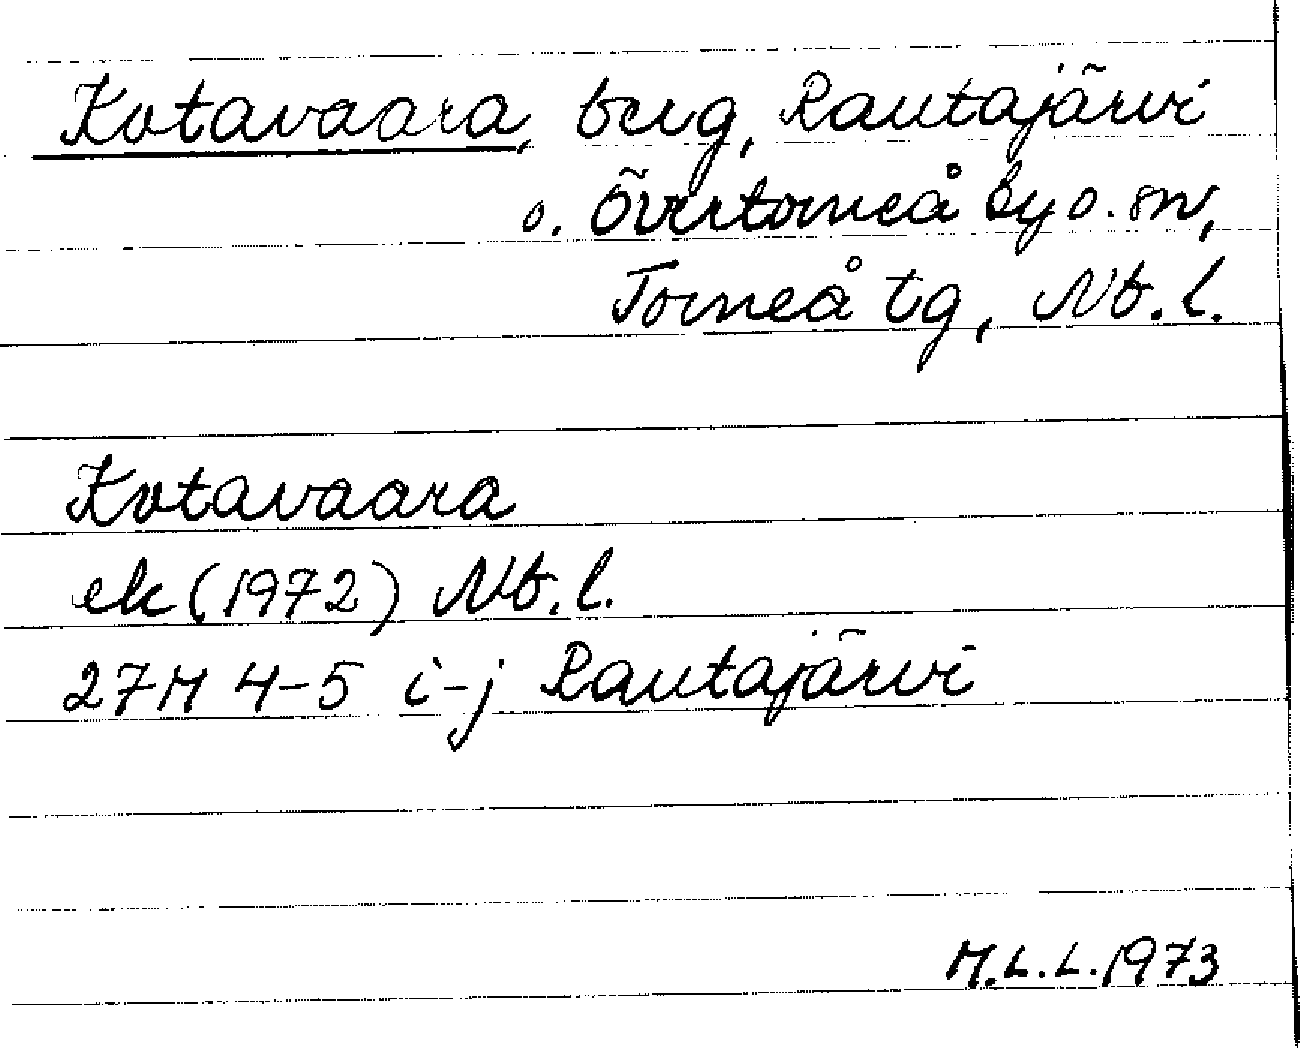 Kotavaara, berg, Rautajärvi
o. Övertorneå by o. sn,
Torneå tg, Nb. l.
Kotavaara
ek (1972) Nb. l.
27M 4-5 i-j Rautajärvi
M.L.L. 1973